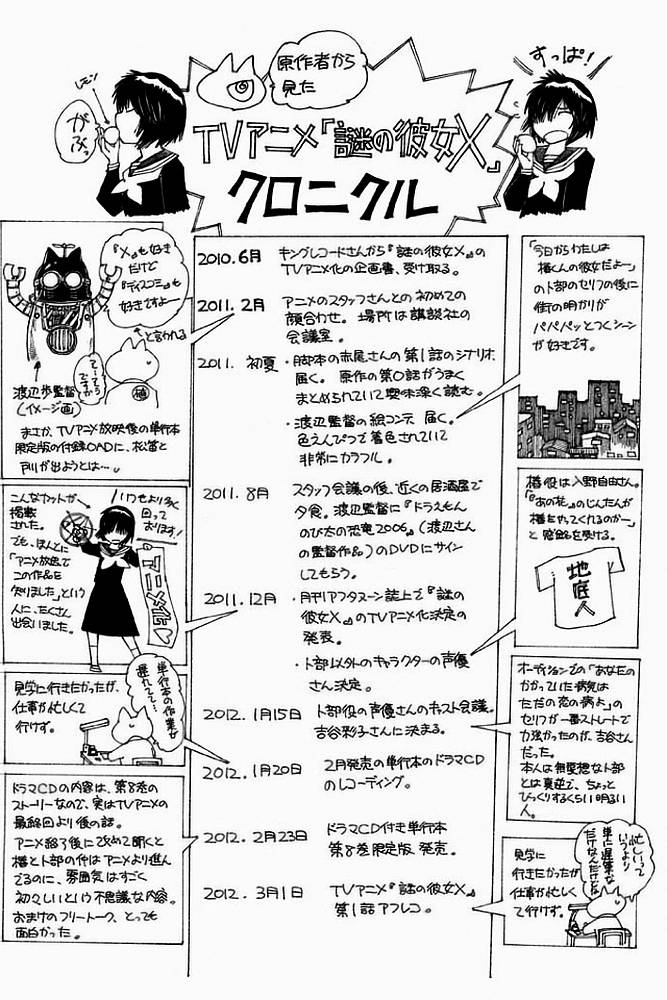 原作者から
見た
TVアニメ「謎の彼女X」
クロニクル
レモン
がぶっ
すっぱ!
2010.6月
キングレコードさんから『謎の彼女X』の
TVアニメ化の企画書、受け取る。
2011.2月
アニメのスタッフさんとの初めての
顔合わせ。場所は講談社の
会議室。
2011.初夏
・脚本の赤尾さんの第1話のシナリオ
届く。原作の第0話がうまく
まとめられていて興味深く読む。
・渡辺監督の絵コンテ届く。
色えんぴつで着色されていて
非常にカラフル。
2011.8月
スタッフ会議の後、近くの居酒屋で
夕食。渡辺監督に『ドラえもん
のび太の恐竜2006』(渡辺さん
の監督作品)のDVDにサイン
してもらう。
2011.12月
・月刊アフタヌーン誌上で『謎の
彼女X』のTVアニメ化決定の
発表。
・卜部以外のキャラクターの声優
さん決定。
2012.1月15日
卜部役の声優さんのキャスト会議。
吉谷彩子さんに決まる。
2012.1月20日
2月発売の単行本のドラマCD
のレコーディング。
2012.2月23日
ドラマCD付き単行本
第8巻限定版 発売。
2012.3月1日
TVアニメ『謎の彼女X』
第1話アフレコ。
『X』も好き
だけど
『ディスコミ』も
好きですよー
と言われる
てーてう
ですか
植
渡辺歩監督
(イメージ画)
まさか、TVアニメ放映後の単行本
限定版の付録OADに、松笛と
戸川が出ようとは…。
こんなカットが
掲載
された。
でも、ほんとに
「アニメ放送で
この作品を
知りました」という
人に、たくさん
出会いました。
いつもより多く
回って
おります!
アニメ化
見学に行きたかったが、
仕事が忙しくて
行けず。
単行本の作業が
遅れてて…
ドラマCDの内容は、第8巻の
ストーリーなので、実はTVアニメの
最終回より後の話。
アニメ終了後に改めて聞くと
椿と卜部の仲はアニメより進ん
でるのに、雰囲気はすごく
初々しいという不思議な内容。
おまけのフリートーク、とっても
面白かった。
「今日からわたしは
椿くんの彼女だよー」
の卜部のセリフの後に
街の明かりが
パパパッとつくシーン
が好きです。
椿役は入野自由さん。
「『あの花』のじんたんが
椿をやってくれるのかー」
と感銘を受ける。
地底人
オーディションでの「あなたの
かかっていた病気は
ただの恋の病よ」の
セリフが一番ストレートで
力強かったのが、吉谷さん
だった。
本人は無愛想な卜部
とは真逆で、ちょっと
びっくりするくらい明るい
人。
見学に
行きたかったが
仕事が忙しく
て行けず。
忙しいって
いうより
単に遅筆な
だけなんだけどな